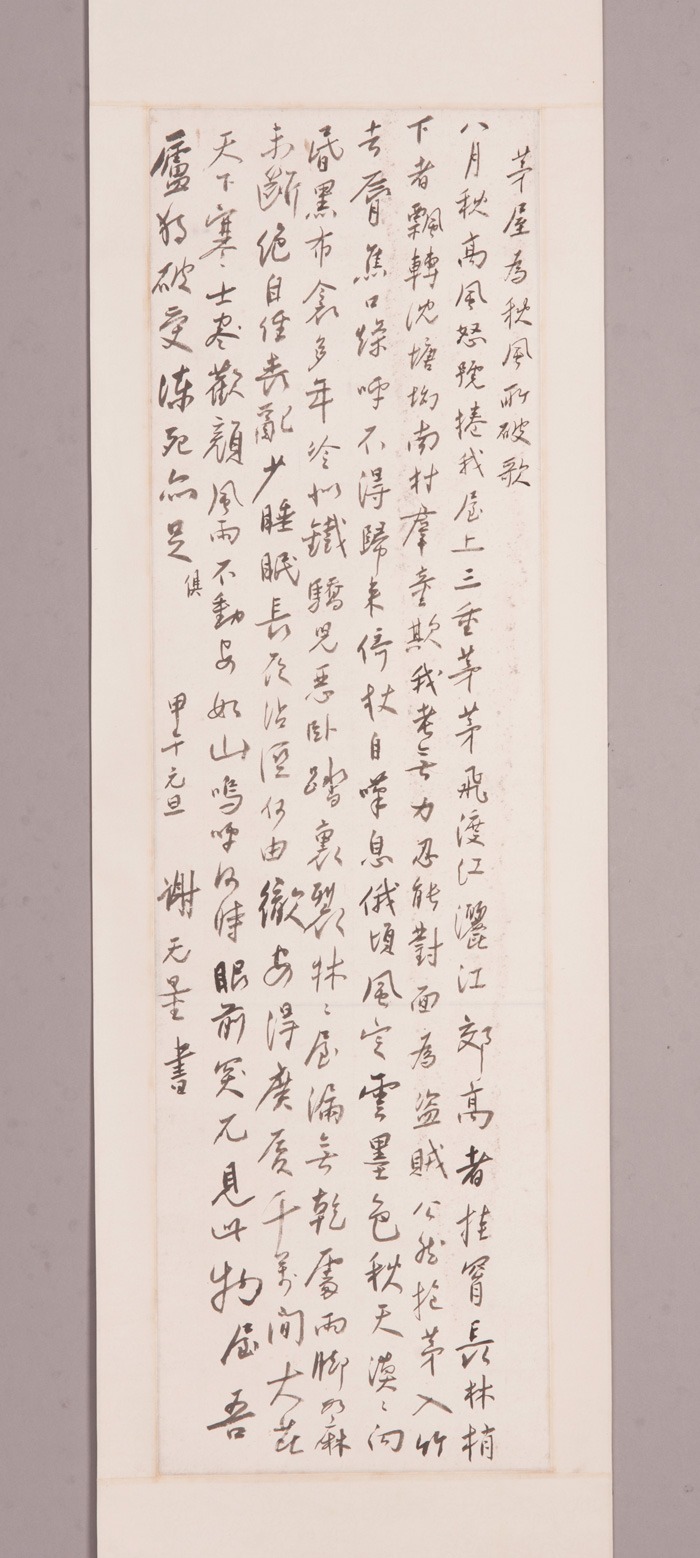 茅屋為秋風所破歌
八月秋高風怒號捲我屋上三重茅茅飛渡江灑江郊高者挂罥長林梢
下者飄轉沈塘坳南村羣童欺我老無力忍能對面為盜賊公然抱茅入竹
去脣焦口燥呼不得歸来倚杖自嘆息俄頃風定雲墨色秋天漠〻向
昏黑布衾多年冷似鐵驕兒惡臥踏裏裂牀〻屋漏無乾處雨脚如麻
未斷絕自經喪亂少睡眠長夜沾溼何由徹安得廣厦千萬間大庇
天下寒〻士尽歡顏風雨不動安如山嗚呼何時眼前突兀見此物屋吾
廬獨破受凍死亦足 俱 甲午元旦 謝无量書